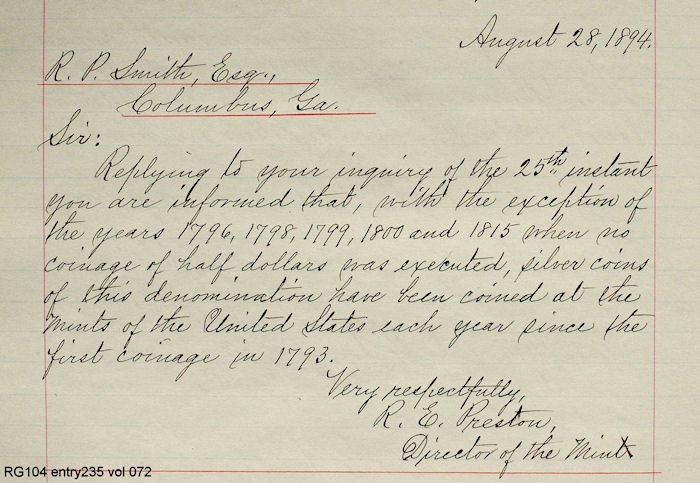 August 28, 1894.
R. P. Smith, Esq.,
Columbus, Ga.
Sir:
Replying to your inquiry of the 25th instant
you are informed that, with the exception of
the years 1796, 1798, 1799, 1800 and 1815 when no
coinage of half dollars was executed, silver coins
of this denomination have been coined at the
Mints of the United States each year since the
first coinage in 1793.
Very respectfully,
R. E. Preston,
Director of the Mint
RG104 entry235 vol 072